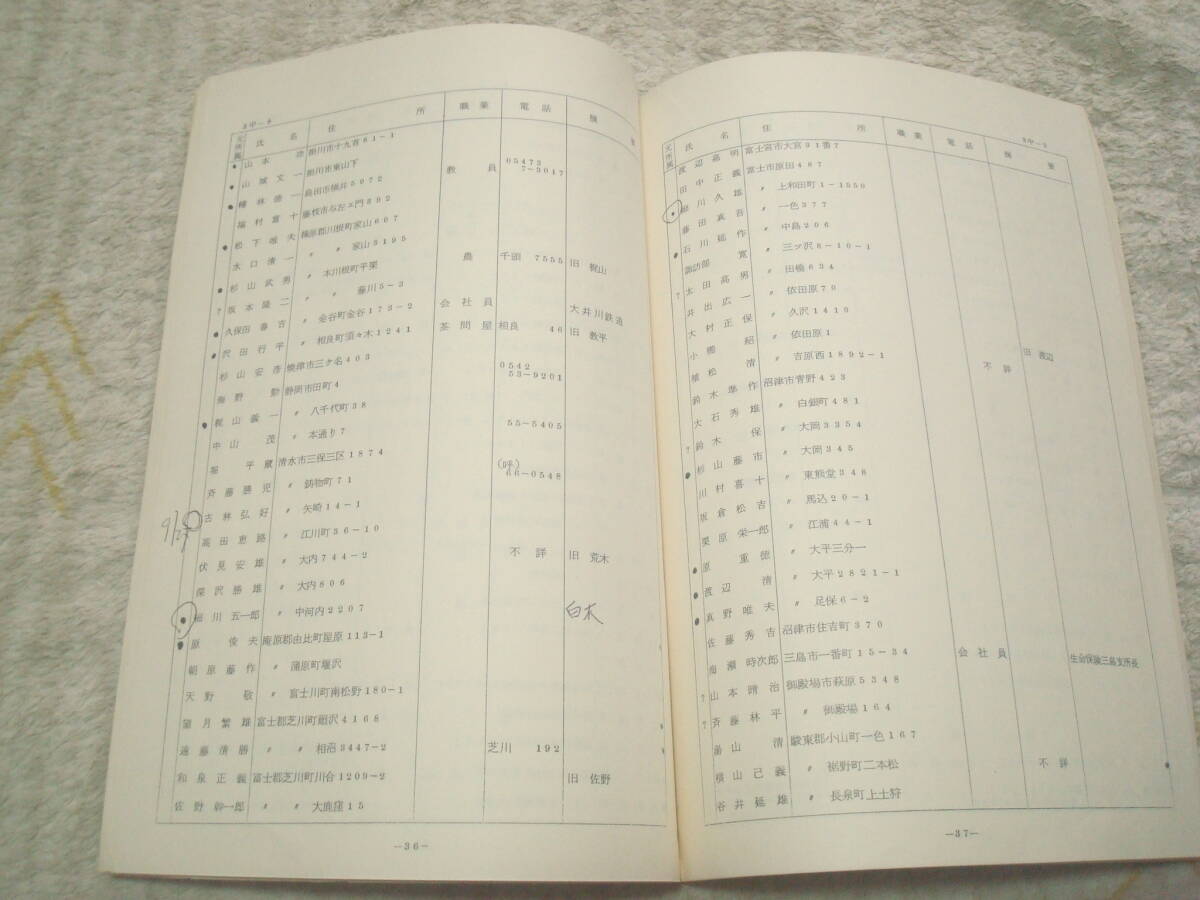 3中-
氏 名 住 所 職業 電話 摘 要
山本 掛川市十九首61-1
山城文一 掛川市東山下 教員 05473 7-9017
島田市横井5072
藤枝市与左ェ門392
松下唯夫 榛原郡川根町家山607
水口清一 〃 〃 家山3195
杉山武秀 〃 本川根町千頭 農 千頭 7555 旧 梶山
? 坂本隆二 〃 〃 藤川5-3
久保田春吉 〃 金谷町金谷173-2 会社員 大井川鉄道
沢田行平 〃 相良町須々木1241 茶問屋 相良 46 旧 数平
杉山安彦 焼津市三ケ名403 0542 53-9201
海野 勲 静岡市田町4
梶山義一 〃 八千代町38 55-5405
中山 茂 〃 本通り7
堀 平蔵 清水市三保三区1874 (呼) 66-0548
斉藤勝児 〃 鋳物町71
古林弘好 〃 矢崎14-1
高田恵路 〃 江川町36-10
伏見安雄 〃 大内744-2 不詳 旧 荒木
深沢勝雄 〃 大内806
細川五一郎 〃 中河内2207 白木
原 俊夫 庵原郡由比町屋原113-1
朝原藤作 〃 蒲原町堰沢
天野 敬 〃 富士川町南松野180-1
望月繁雄 富士郡芝川町廻沢4168
遠藤清勝 〃 〃 相沼3447-2 芝川 192
和泉正義 富士郡芝川町川合1209-2 旧 佐野
佐野幹一郎 〃 〃 大鹿窪15
-36-
3中-
氏 名 住 所 職業 電話 摘 要
渡辺嘉明 富士宮市大宮91番7
田中正義 富士市原田487
細川久雄 〃 上和田町1-1550
藤田真吾 〃 一色377
石川 作 〃 中島206
諏訪部 寛 〃 三ツ沢6-10-1
? 太田高男 〃 田橋634
井出広一 〃 依田原70
大村正保 〃 久沢1410
小熊 紹 〃 依田原1
植松 清 〃 吉原西1892-1 旧 渡辺
鈴木準作 沼津市青野423 不詳
大石秀雄 〃 白銀町481
? 鈴木 保 〃 大岡3354
杉山藤市 〃 大岡345
川村喜十 〃 東熊堂348
坂倉松吉 〃 馬込20-1
栗原栄一郎 〃 江浦44-1
原 重徳 〃 大平三分一
渡辺 清 〃 大平2821-1
真野唯夫 〃 足保6-2
佐藤秀吉 沼津市住吉町370
海瀬時次郎 三島市一番町15-34 会社員 生命保険三島支所長
? 山本晴治 御殿場市萩原5348
? 斉藤林平 〃 御殿場164
湯山 清 駿東郡小山町一色167
横山己義 〃 裾野町二本松 不詳
谷井延雄 〃 長泉町上土狩
-37-